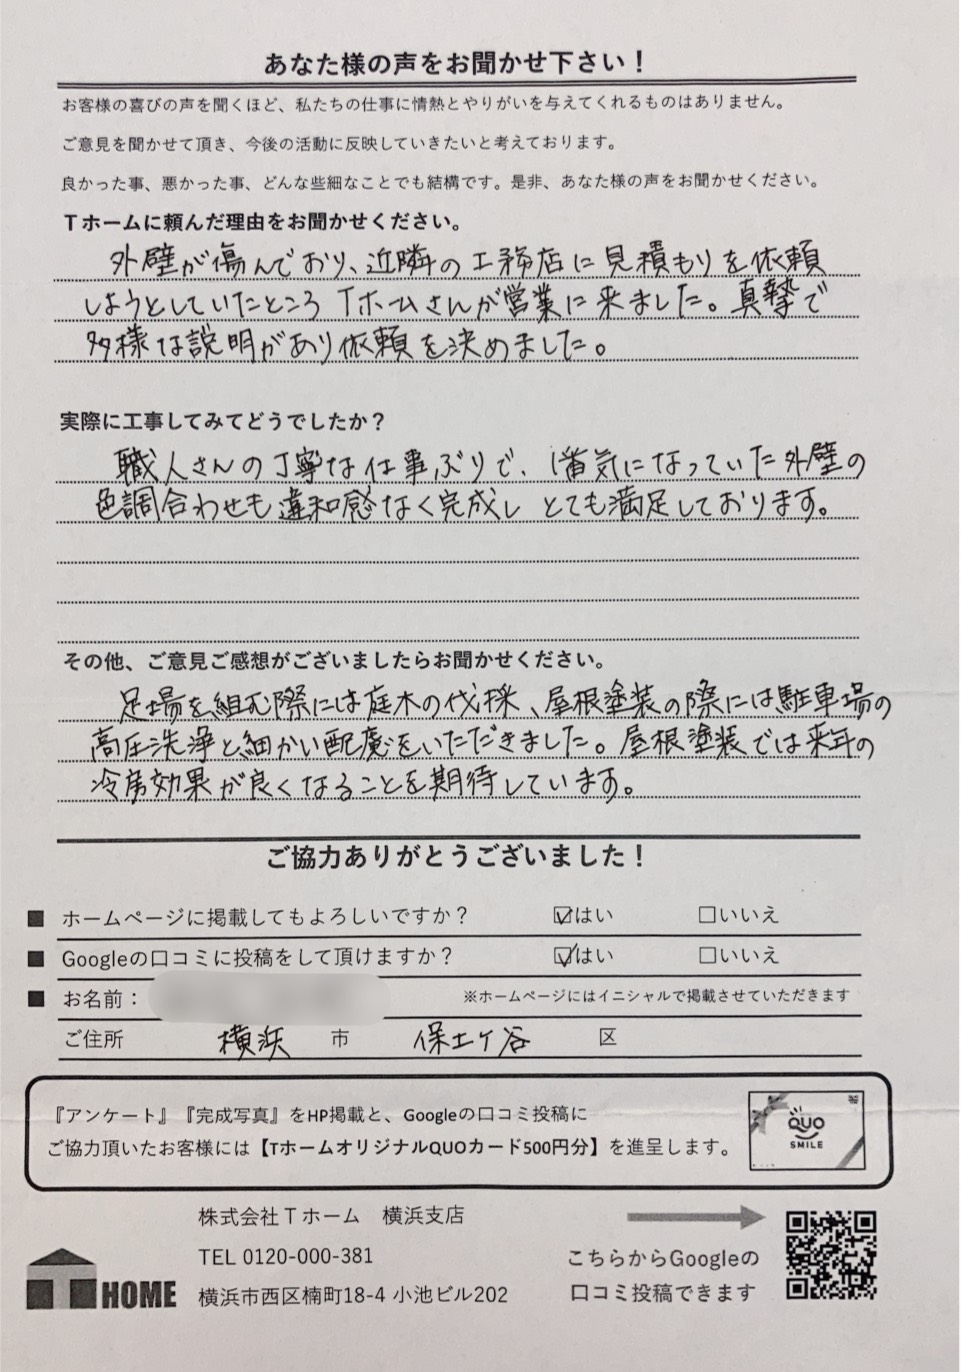 あなた様の声をお聞かせ下さい！
お客様の喜びの声を聞くほど、私たちの仕事に情熱とやりがいを与えてくれるものはありません。
ご意見を聞かせて頂き、今後の活動に反映していきたいと考えております。
良かった事、悪かった事、どんな些細なことでも結構です。是非、あなた様の声をお聞かせください。
Tホームに頼んだ理由をお聞かせください。
外壁が傷んでおり、近隣の工務店に見積もりを依頼
しようとしていたところTホームさんが営業に来ました。真摯で
多様な説明があり依頼を決めました。
実際に工事してみてどうでしたか？
職人さんの丁寧な仕事ぶりで、1番気になっていた外壁の
色調合わせも違和感なく完成し とても満足しております。
その他、ご意見ご感想がございましたらお聞かせください。
足場を組む際には庭木の伐採、屋根塗装の際には駐車場の
高圧洗浄と細かい配慮をいただきました。屋根塗装では来年の
冷房効果が良くなることを期待しています。
ご協力ありがとうございました！
■ ホームページに掲載してもよろしいですか？ ☑はい □いいえ
■ Googleの口コミに投稿をして頂けますか？ ☑はい □いいえ
■ お名前： ※ホームページにはイニシャルで掲載させていただきます
ご住所 横浜 市 保土ケ谷 区
『アンケート』『完成写真』をHP掲載と、Googleの口コミ投稿に
ご協力頂いたお客様には【TホームオリジナルQUOカード500円分】を進呈します。
QUO
SMILE
株式会社Tホーム 横浜支店
TEL 0120-000-381
横浜市西区楠町18-4 小池ビル202
T HOME
こちらからGoogleの
口コミ投稿できます